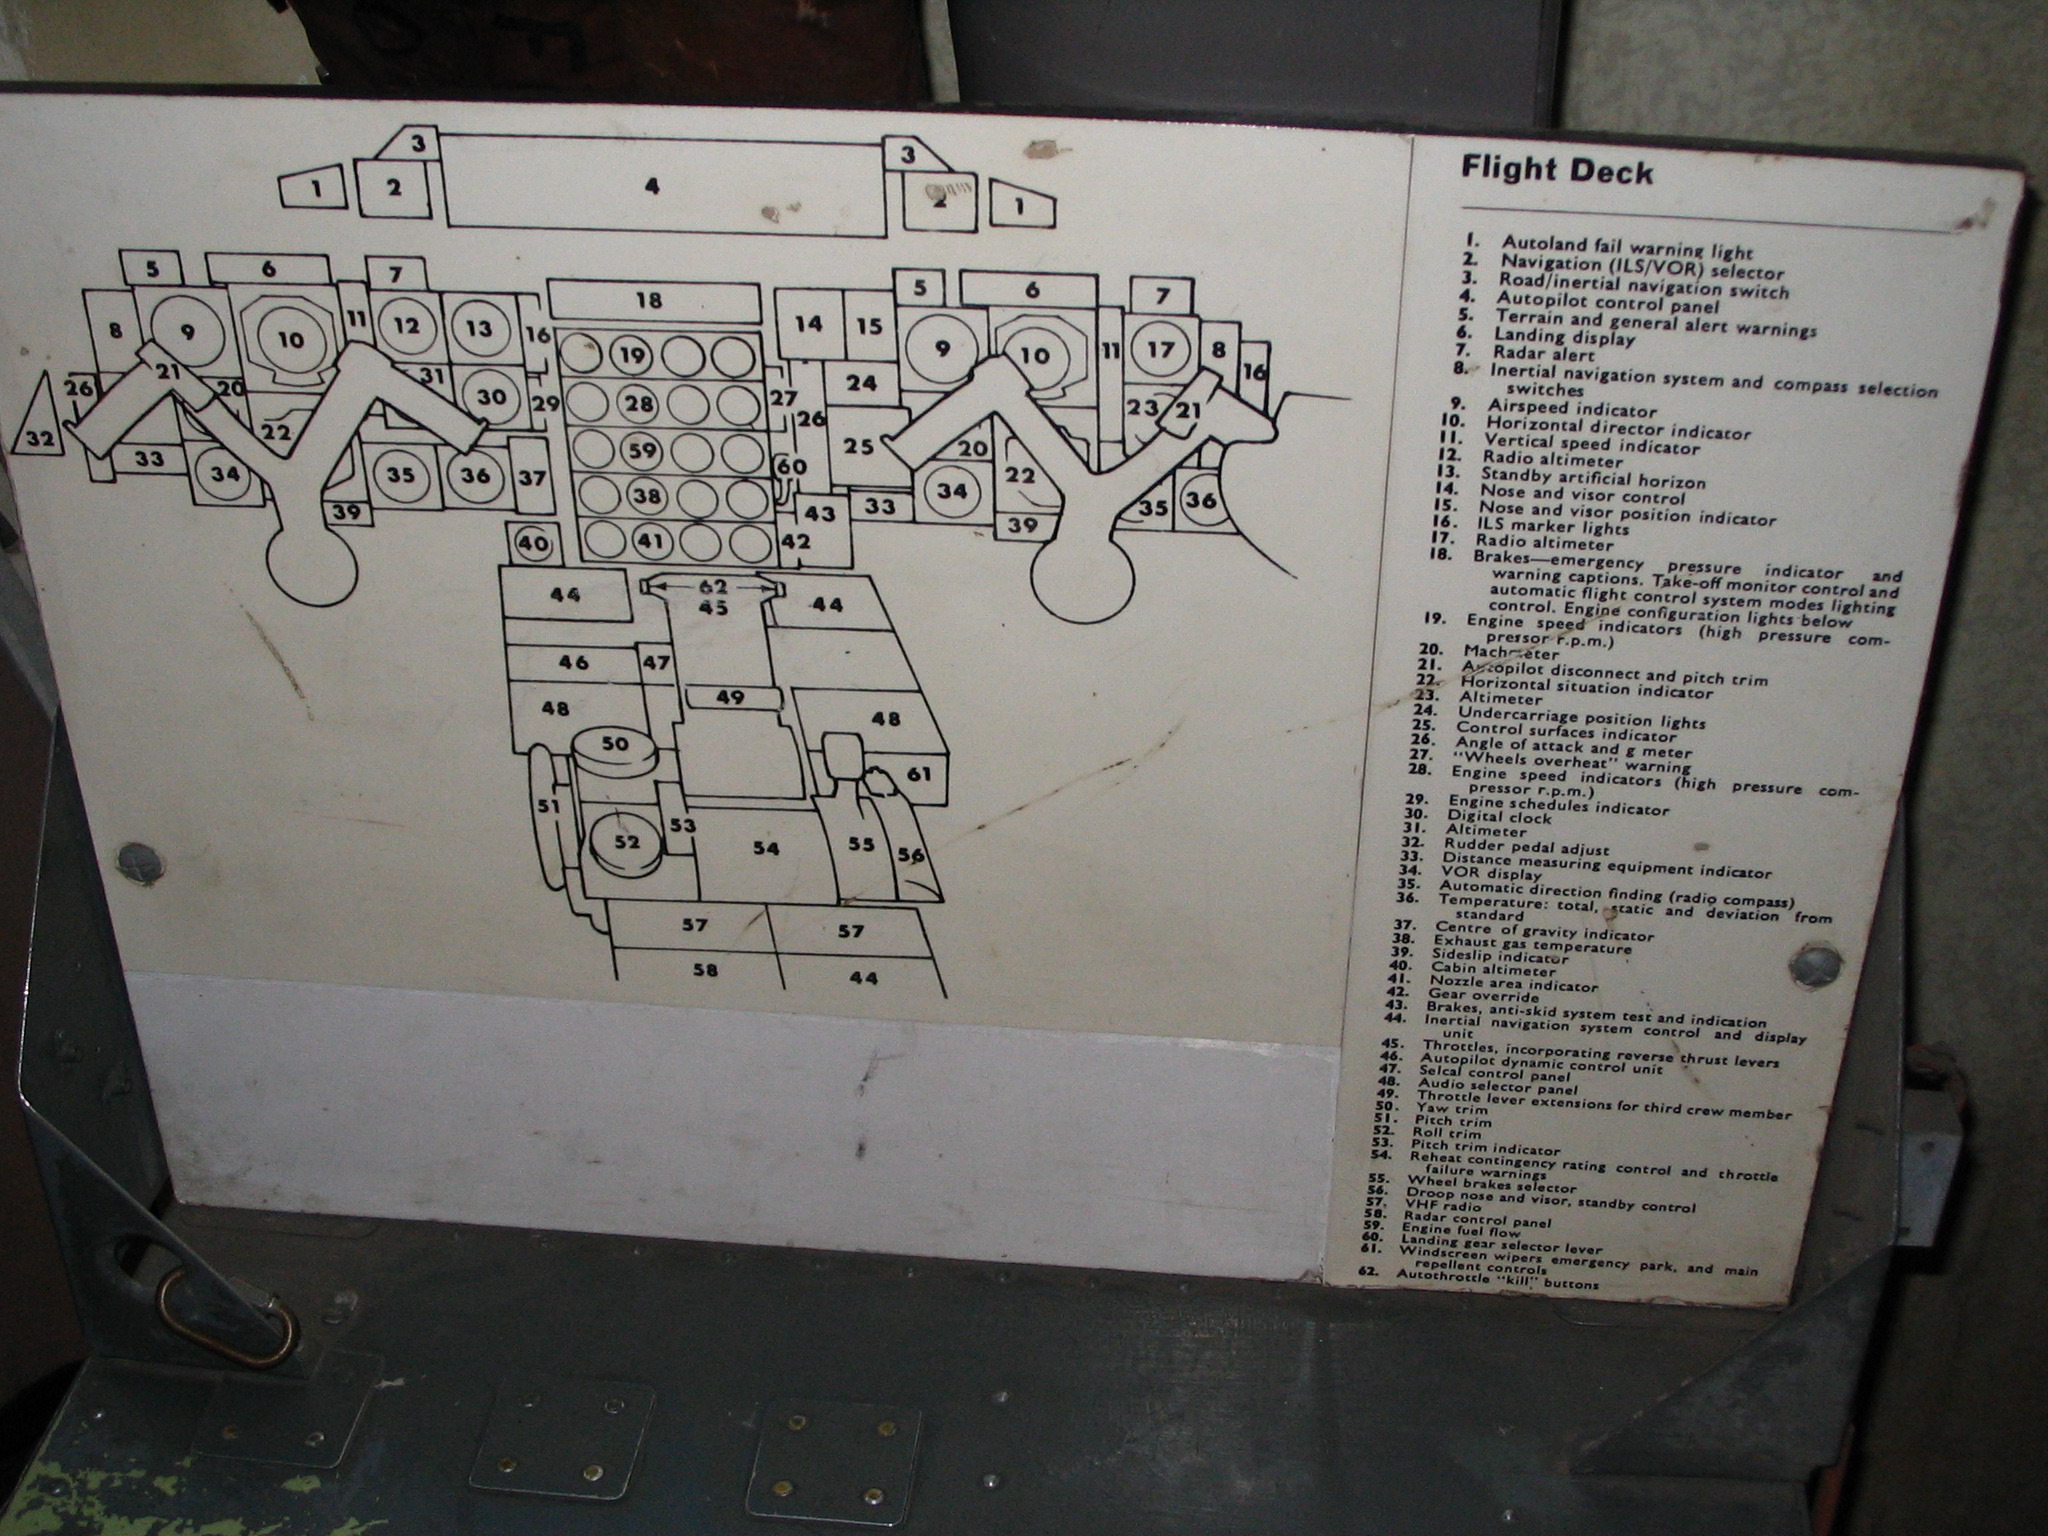 3
3
1
2
4
2
1
5
6
7
18
5
6
7
8
9
10
11
12
13
16
19
14
15
9
10
11
17
8
16
21
26
20
31
30
29
28
27
26
24
23
21
32
22
33
34
35
36
37
59
60
25
20
22
34
33
35
36
39
38
43
39
40
41
42
44
62
45
44
46
47
49
48
48
50
61
51
53
52
54
55
56
57
57
58
44
Flight Deck
1. Autoland fail warning light
2. Navigation (ILS/VOR) selector
3. Road/inertial navigation switch
4. Autopilot control panel
5. Terrain and general alert warnings
6. Landing display
7. Radar alert
8. Inertial navigation system and compass selection
switches
9. Airspeed indicator
10. Horizontal director indicator
11. Vertical speed indicator
12. Radio altimeter
13. Standby artificial horizon
14. Nose and visor control
15. Nose and visor position indicator
16. ILS marker lights
17. Radio altimeter
18. Brakes—emergency pressure indicator and
warning captions. Take-off monitor control and
automatic flight control system modes lighting
control. Engine configuration lights below
19. Engine speed indicators (high pressure com-
pressor r.p.m.)
20. Machmeter
21. Autopilot disconnect and pitch trim
22. Horizontal situation indicator
23. Altimeter
24. Undercarriage position lights
25. Control surfaces indicator
26. Angle of attack and g meter
27. "Wheels overheat" warning
28. Engine speed indicators (high pressure com-
pressor r.p.m.)
29. Engine schedules indicator
30. Digital clock
31. Altimeter
32. Rudder pedal adjust
33. Distance measuring equipment indicator
34. VOR display
35. Automatic direction finding (radio compass)
36. Temperature: total, static and deviation from
standard
37. Centre of gravity indicator
38. Exhaust gas temperature
39. Sideslip indicator
40. Cabin altimeter
41. Nozzle area indicator
42. Gear override
43. Brakes, anti-skid system test and indication
44. Inertial navigation system control and display
unit
45. Throttles, incorporating reverse thrust levers
46. Autopilot dynamic control unit
47. Selcal control panel
48. Audio selector panel
49. Throttle lever extensions for third crew member
50. Yaw trim
51. Pitch trim
52. Roll trim
53. Pitch trim indicator
54. Reheat contingency rating control and throttle
failure warnings
55. Wheel brakes selector
56. Droop nose and visor, standby control
57. VHF radio
58. Radar control panel
59. Engine fuel flow
60. Landing gear selector lever
61. Windscreen wipers emergency park, and main
repellent controls
62. Autothrottle "kill" buttons